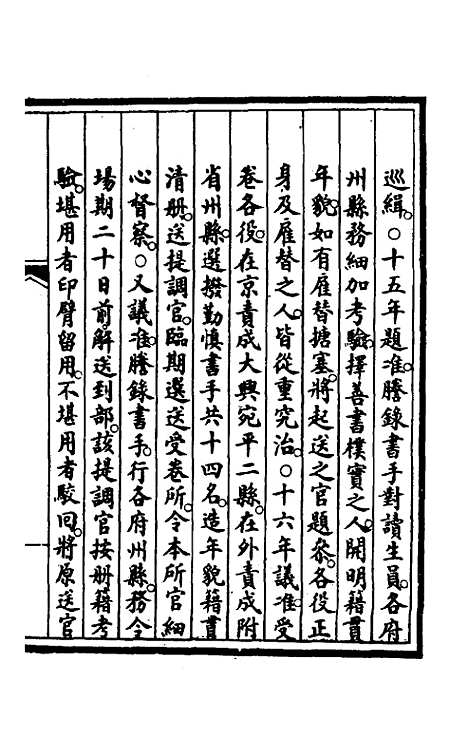 巡緝。○十五年題准。謄錄書手對讀生員。各府
州縣務細加考驗。擇善書樸實之人。開明籍貫
年貌。如有雇替搪塞。將起送之官題叅。各役正
身及雇替之人。皆從重究治。○十六年議准。受
卷各役。在京責成大興宛平二縣。在外責成附
省州縣。選撥勤慎書手共十四名。造年貌籍貫
清册。送提調官。臨期選送受卷所。令本所官細
心督察。○又議准。謄錄書手。行各府州縣。務令
場期二十日前。解送到部。該提調官按册籍考
驗。堪用者印臂留用。不堪用者駮回。將原送官